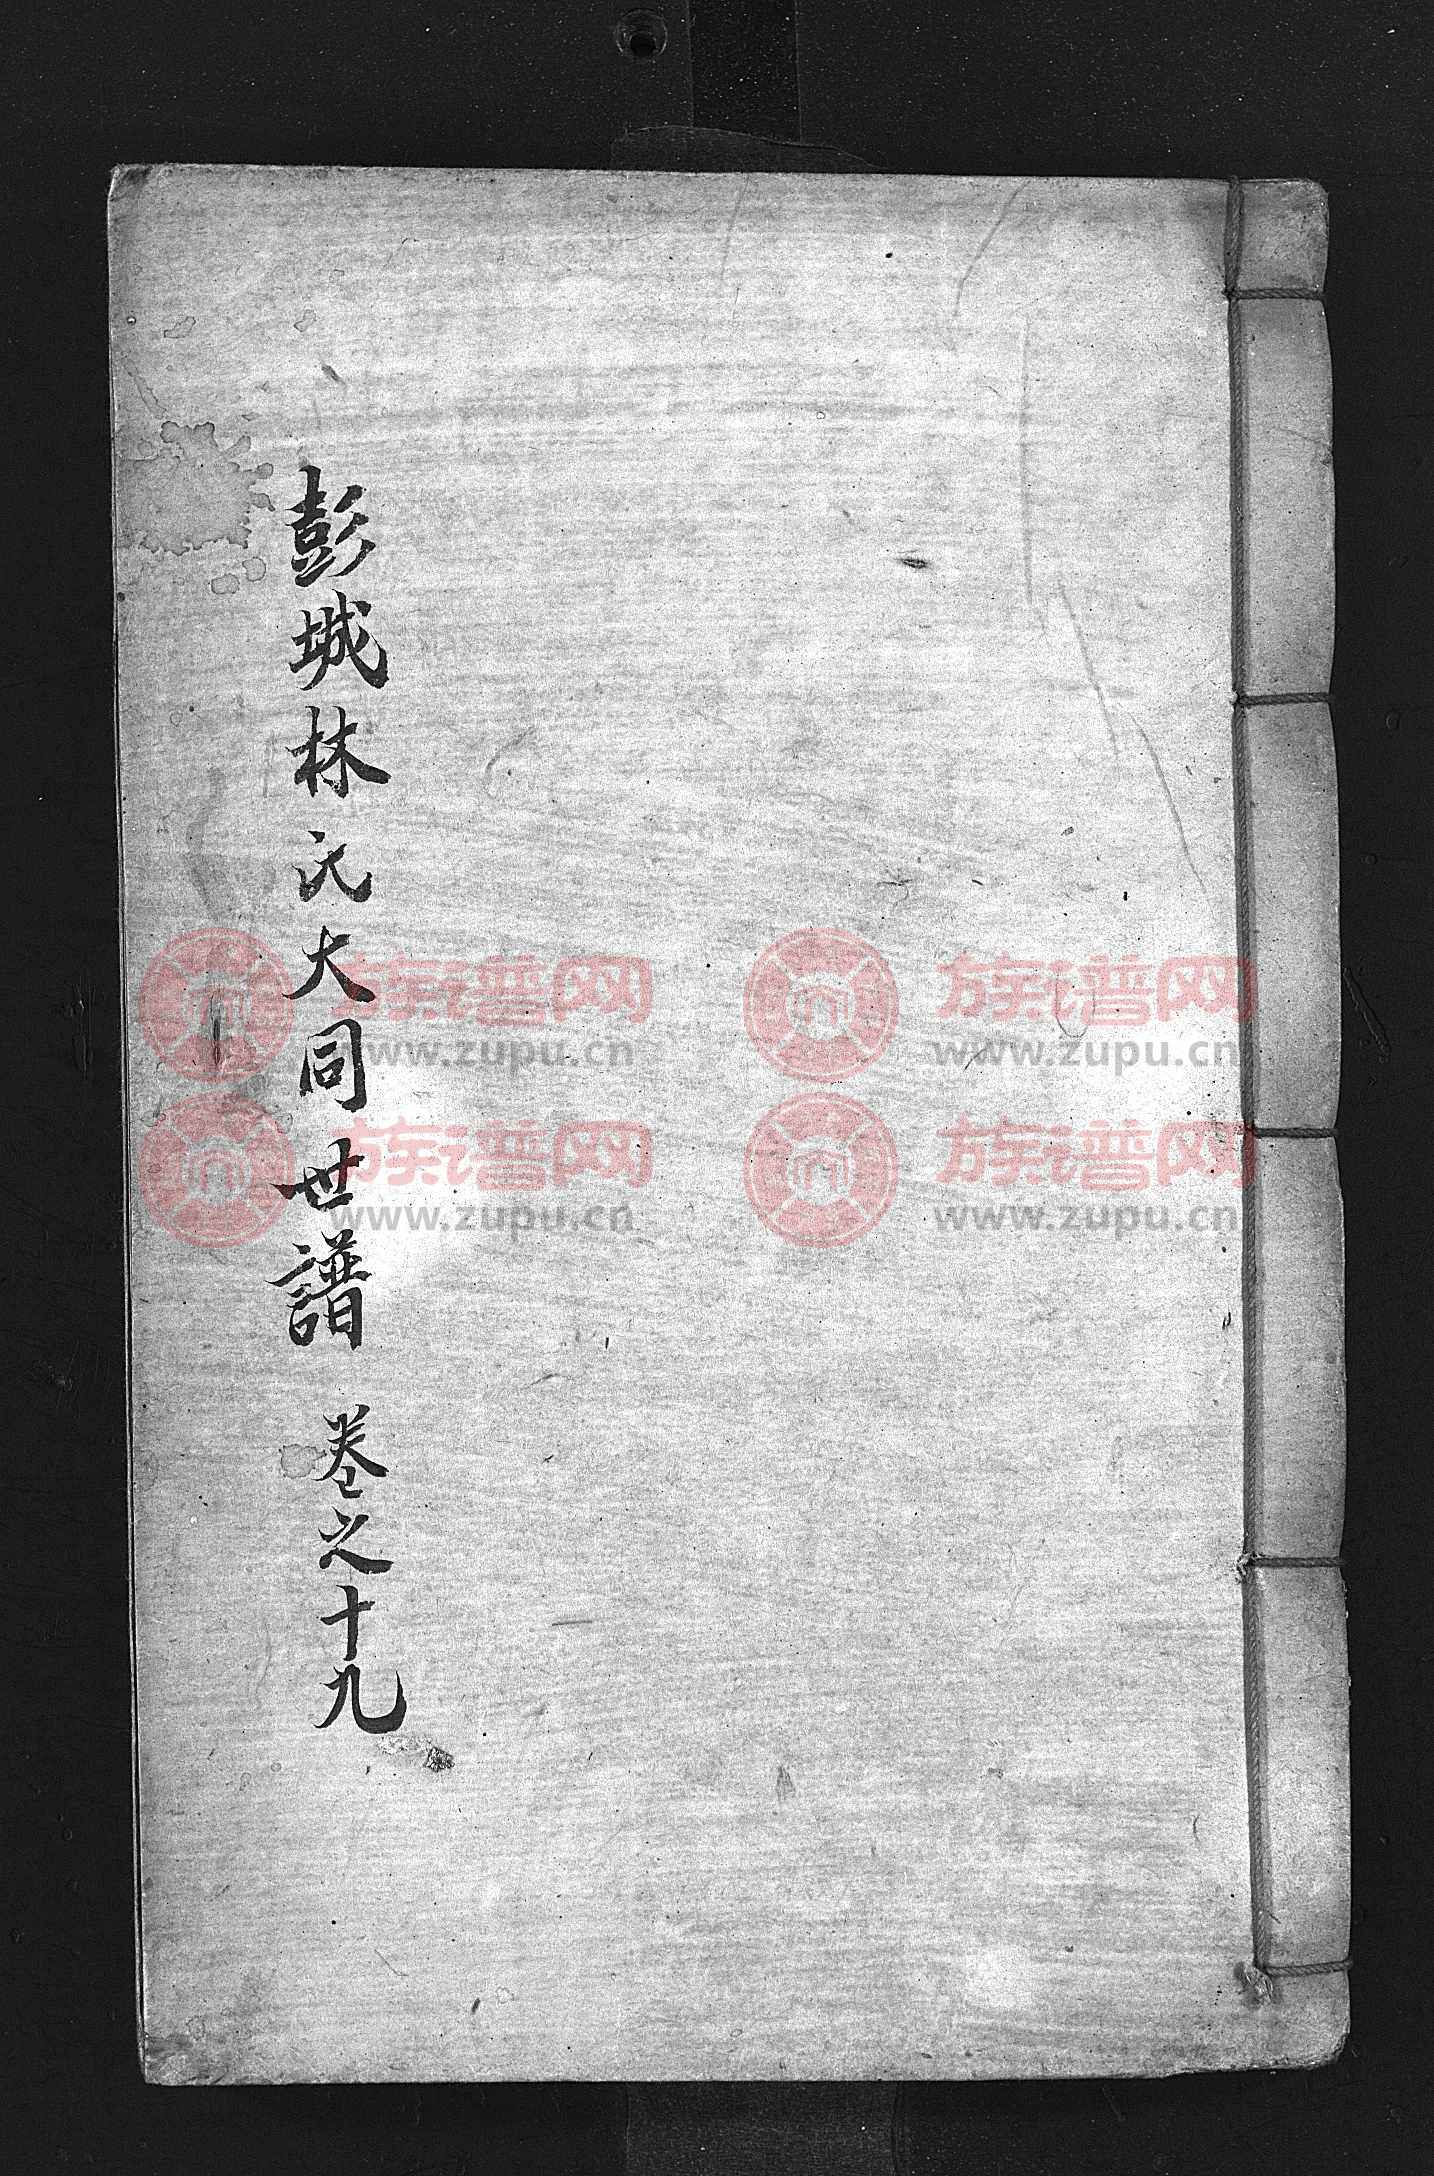 彭城林氏大同世譜 卷之十九
族谱网
www.zupu.cn
族谱网
www.zupu.cn
族谱网
www.zupu.cn
族谱网
www.zupu.cn